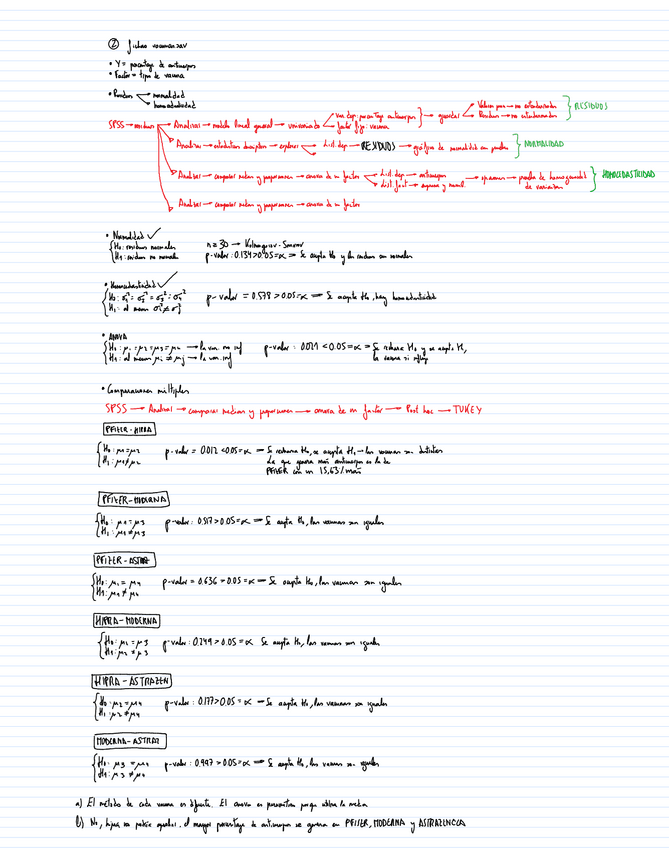 ② fichero vacunas.sav
• Y = porcentaje de anticuerpos
• Factor = tipo de vacuna
• Residuos normalidad
homocedasticidad
SPSS → residuos → Analizar → modelo lineal general → univariado → var. dep: porcentaje anticuerpos → guardar → Valores pron → no estandarizados RESIDUOS
factor fijo: vacuna Residuos → no estandarizados
Analizar → estadísticos descriptivos → explorar → List. dep → RESIDUOS → gráficos de normalidad con pruebas NORMALIDAD
Analizar → comparar medias y proporciones → anova de un factor → List. dep → anticuerpos → opciones → prueba de homogeneidad de varianzas HOMOCEDASTICIDAD
List. fact →
Analizar → comparar medias y proporciones → anova de un factor
• Normalidad ✓
H₀: residuos normales n ≥ 30 → Kolmogorov-Smirnov
H₁: residuos no normales p-valor: 0.134 > 0.05 = α ⇒ Se acepta H₀ y los residuos son normales
• Homocedasticidad ✓
H₀: σ₁² = σ₂² = σ₃² = σ₄² p-valor = 0.578 > 0.05 = α ⇒ Se acepta H₀, hay homocedasticidad
H₁: al menos σi² ≠ σj²
• ANOVA
H₀: μ₁ = μ₂ = μ₃ = μ₄ → la vac. no inf p-valor: 0.021 < 0.05 = α ⇒ Se rechaza H₀ y se acepta H₁
H₁: al menos μi ≠ μj → la vac. inf la vacuna sí influye
• Comparaciones múltiples
SPSS → Analizar → comparar medias y proporciones → anova de un factor → Post hoc → TUKEY
PFIZER-HIPRA
H₀: μ₁ = μ₂ p-valor = 0.012 < 0.05 = α ⇒ Se rechaza H₀, se acepta H₁ → las vacunas son distintas
H₁: μ₁ ≠ μ₂ La que genera más anticuerpos es la de
PFIZER con un 15,63% más
PFIZER-MODERNA
H₀: μ₁ = μ₃ p-valor: 0.517 > 0.05 = α ⇒ Se acepta H₀, las vacunas son iguales
H₁: μ₁ ≠ μ₃
PFIZER-ASTRAZ
H₀: μ₁ = μ₄ p-valor = 0.636 > 0.05 = α ⇒ Se acepta H₀, las vacunas son iguales
H₁: μ₁ ≠ μ₄
HIPRA-MODERNA
H₀: μ₂ = μ₃ p-valor: 0.249 > 0.05 = α Se acepta H₀, las vacunas son iguales
H₁: μ₂ ≠ μ₃
HIPRA-ASTRAZEN
H₀: μ₂ = μ₄ p-valor: 0.177 > 0.05 = α ⇒ Se acepta H₀, las vacunas son iguales
H₁: μ₂ ≠ μ₄
MODERNA-ASTRAZ
H₀: μ₃ = μ₄ p-valor: 0.997 > 0.05 = α ⇒ Se acepta H₀, las vacunas son iguales
H₁: μ₃ ≠ μ₄
a) El método de cada vacuna es diferente. El anova es paramétrico porque utiliza la media
b) No, hipra no podría igualar. el mayor porcentaje de anticuerpos se genera en PFIZER, MODERNA y ASTRAZENECA